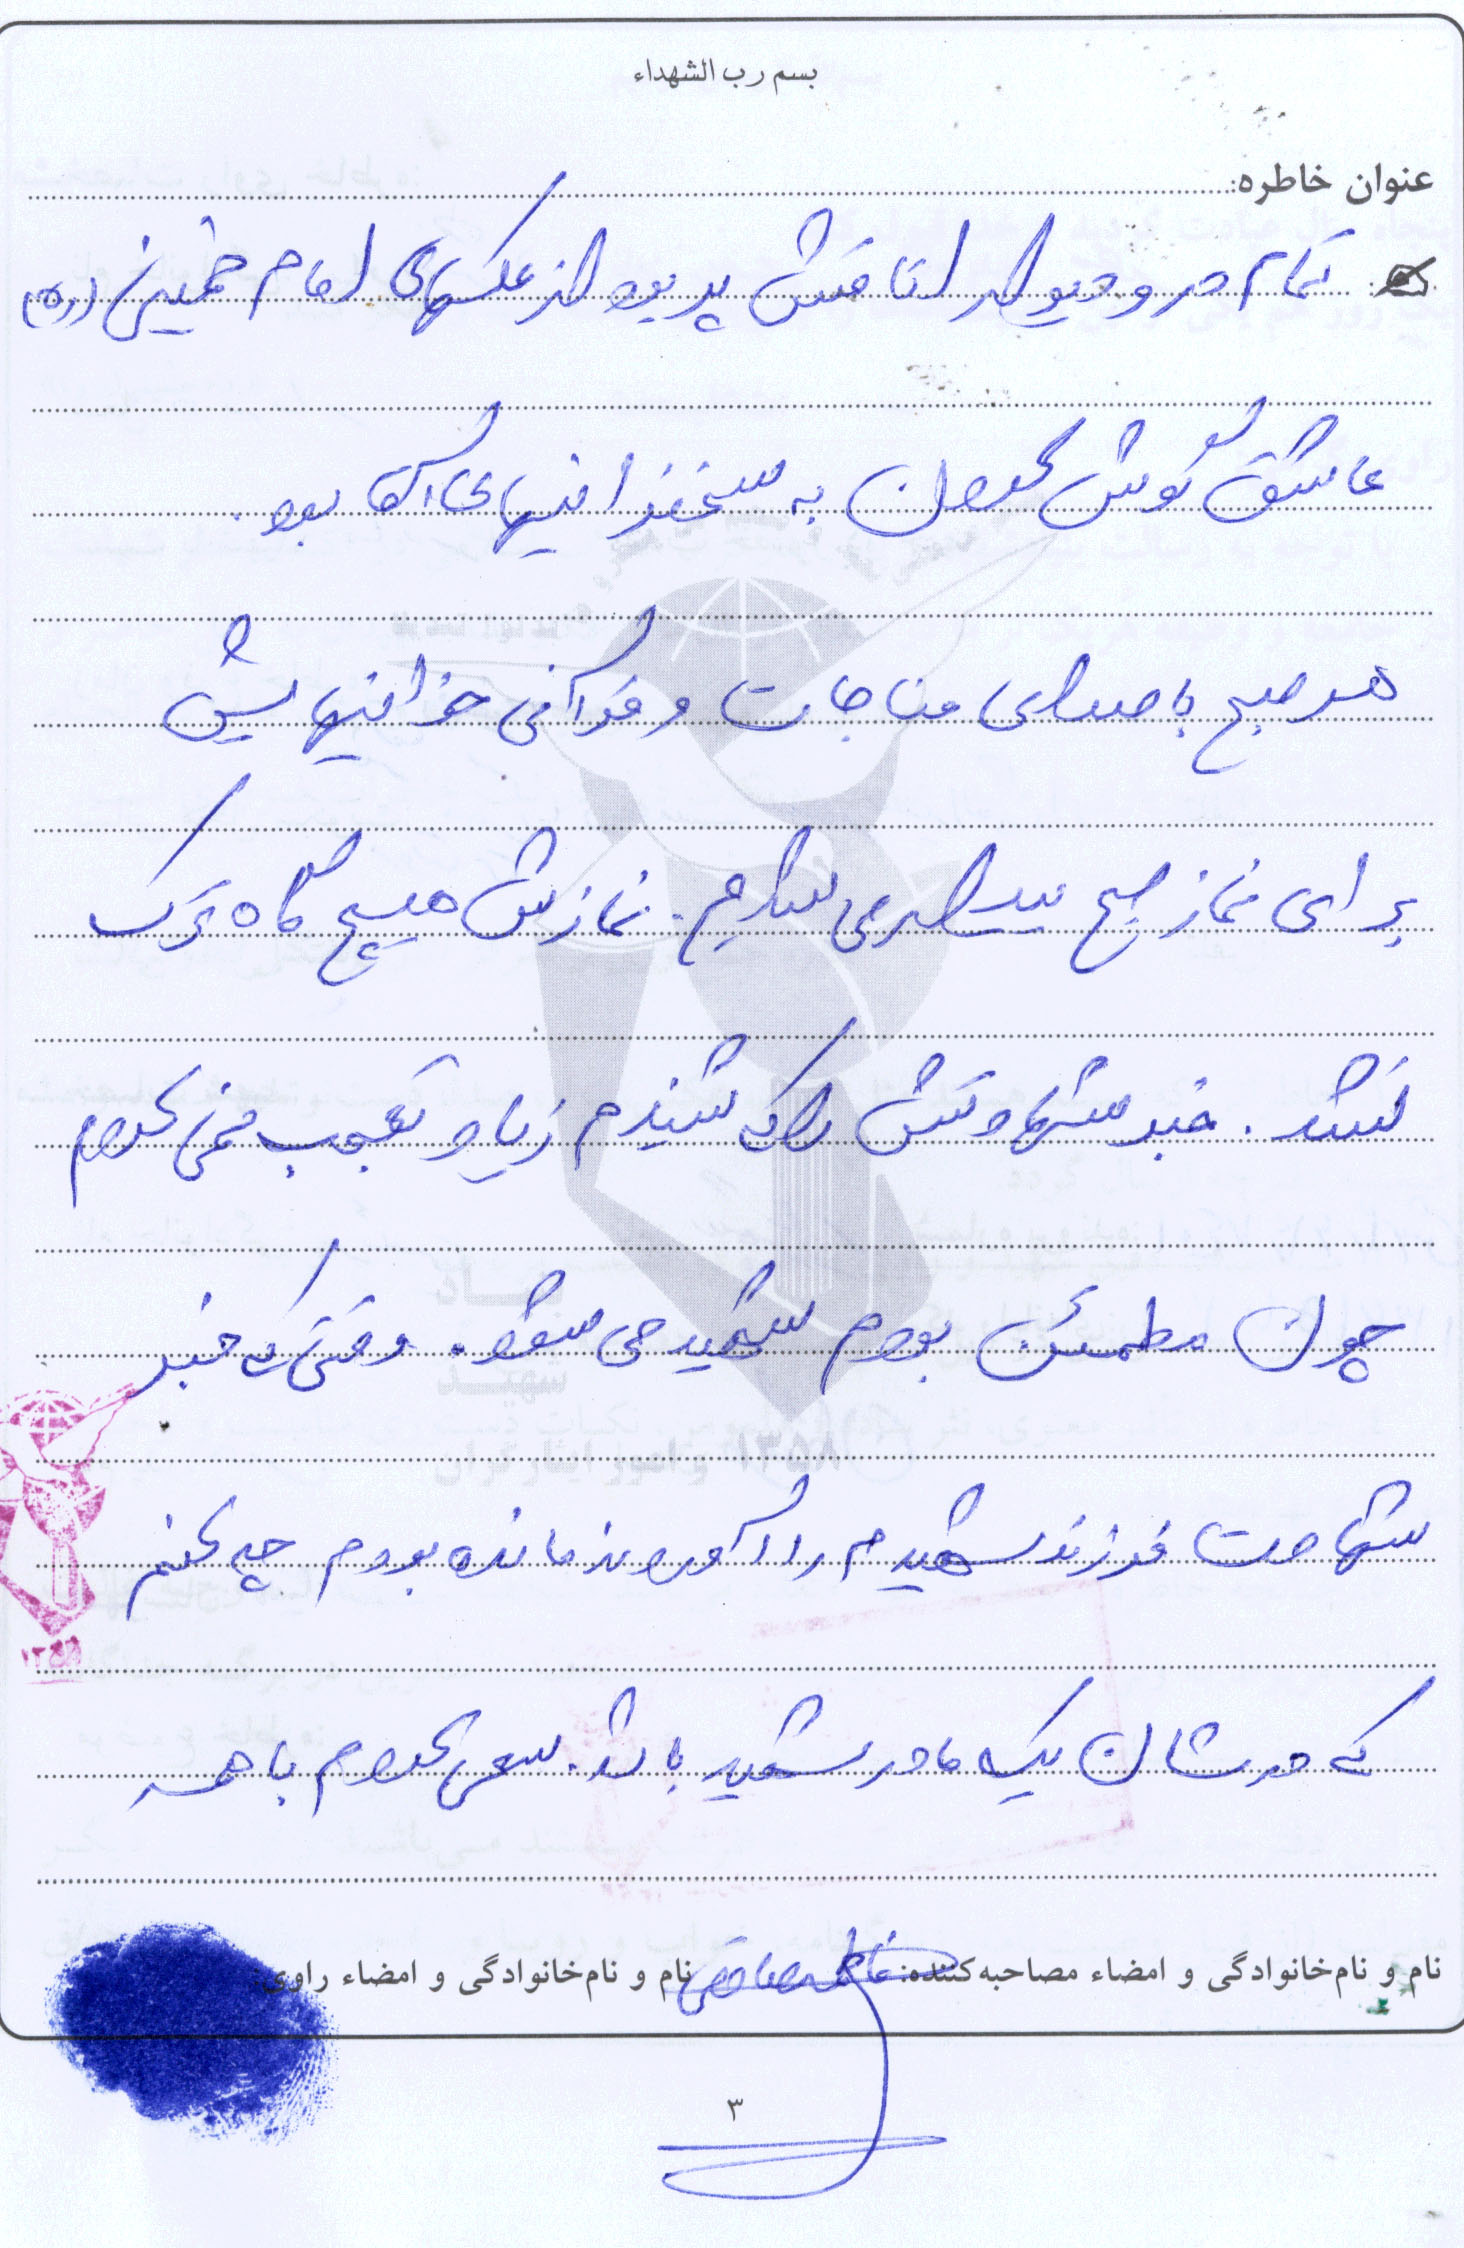 بسم رب الشهداء
عنوان خاطره:
تمام در و دیوار اتاقش پر بود از عکسهای امام خمینی (ره)
عاشق گوش کردن به سخنرانیهای آقا بود.
هر صبح با صدای مناجات و قرآن خوانیهایش
برای نماز صبح بیدار می شدیم. نمازش هیچ گاه ترک
نشد. خبر شهادتش را که شنیدم زیاد تعجب نمی کردم
چون مطمئن بودم شهید می شود. وقتی که خبر
شهادت فرزند شهیدم را آوردند مانده بودم چه کنم
که در شان یک مادر شهید باشد. سعی کردم با همه
نام و نام‌خانوادگی و امضاء مصاحبه‌کننده: نام و نام‌خانوادگی و امضاء راوی:
۳
۱۳۵۸